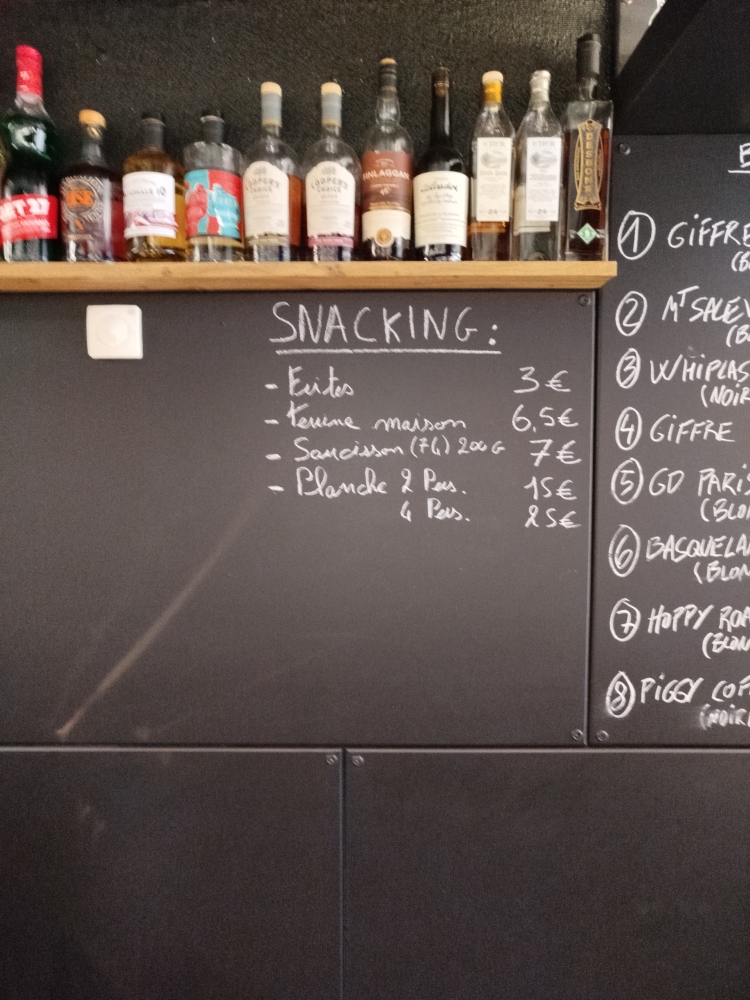 COOPER'S
CHOICE
COOPER'S
CHOICE
FINLAGGAN
SNACKING :
- Frites 3 €
- Terrine maison 6,5 €
- Saucisson (74) 200 G 7 €
- Planche 2 Pers. 15 €
4 Pers. 25 €
B
1 GIFFRE
(B
2 MT SALEV
(B
3 WHIPLAS
(NOIR
4 GIFFRE
5 GD PARIS
(BLON
6 BASQUELA
(BLON
7 HOPPY ROA
(BLON
8 PIGGY COF
(NOIR